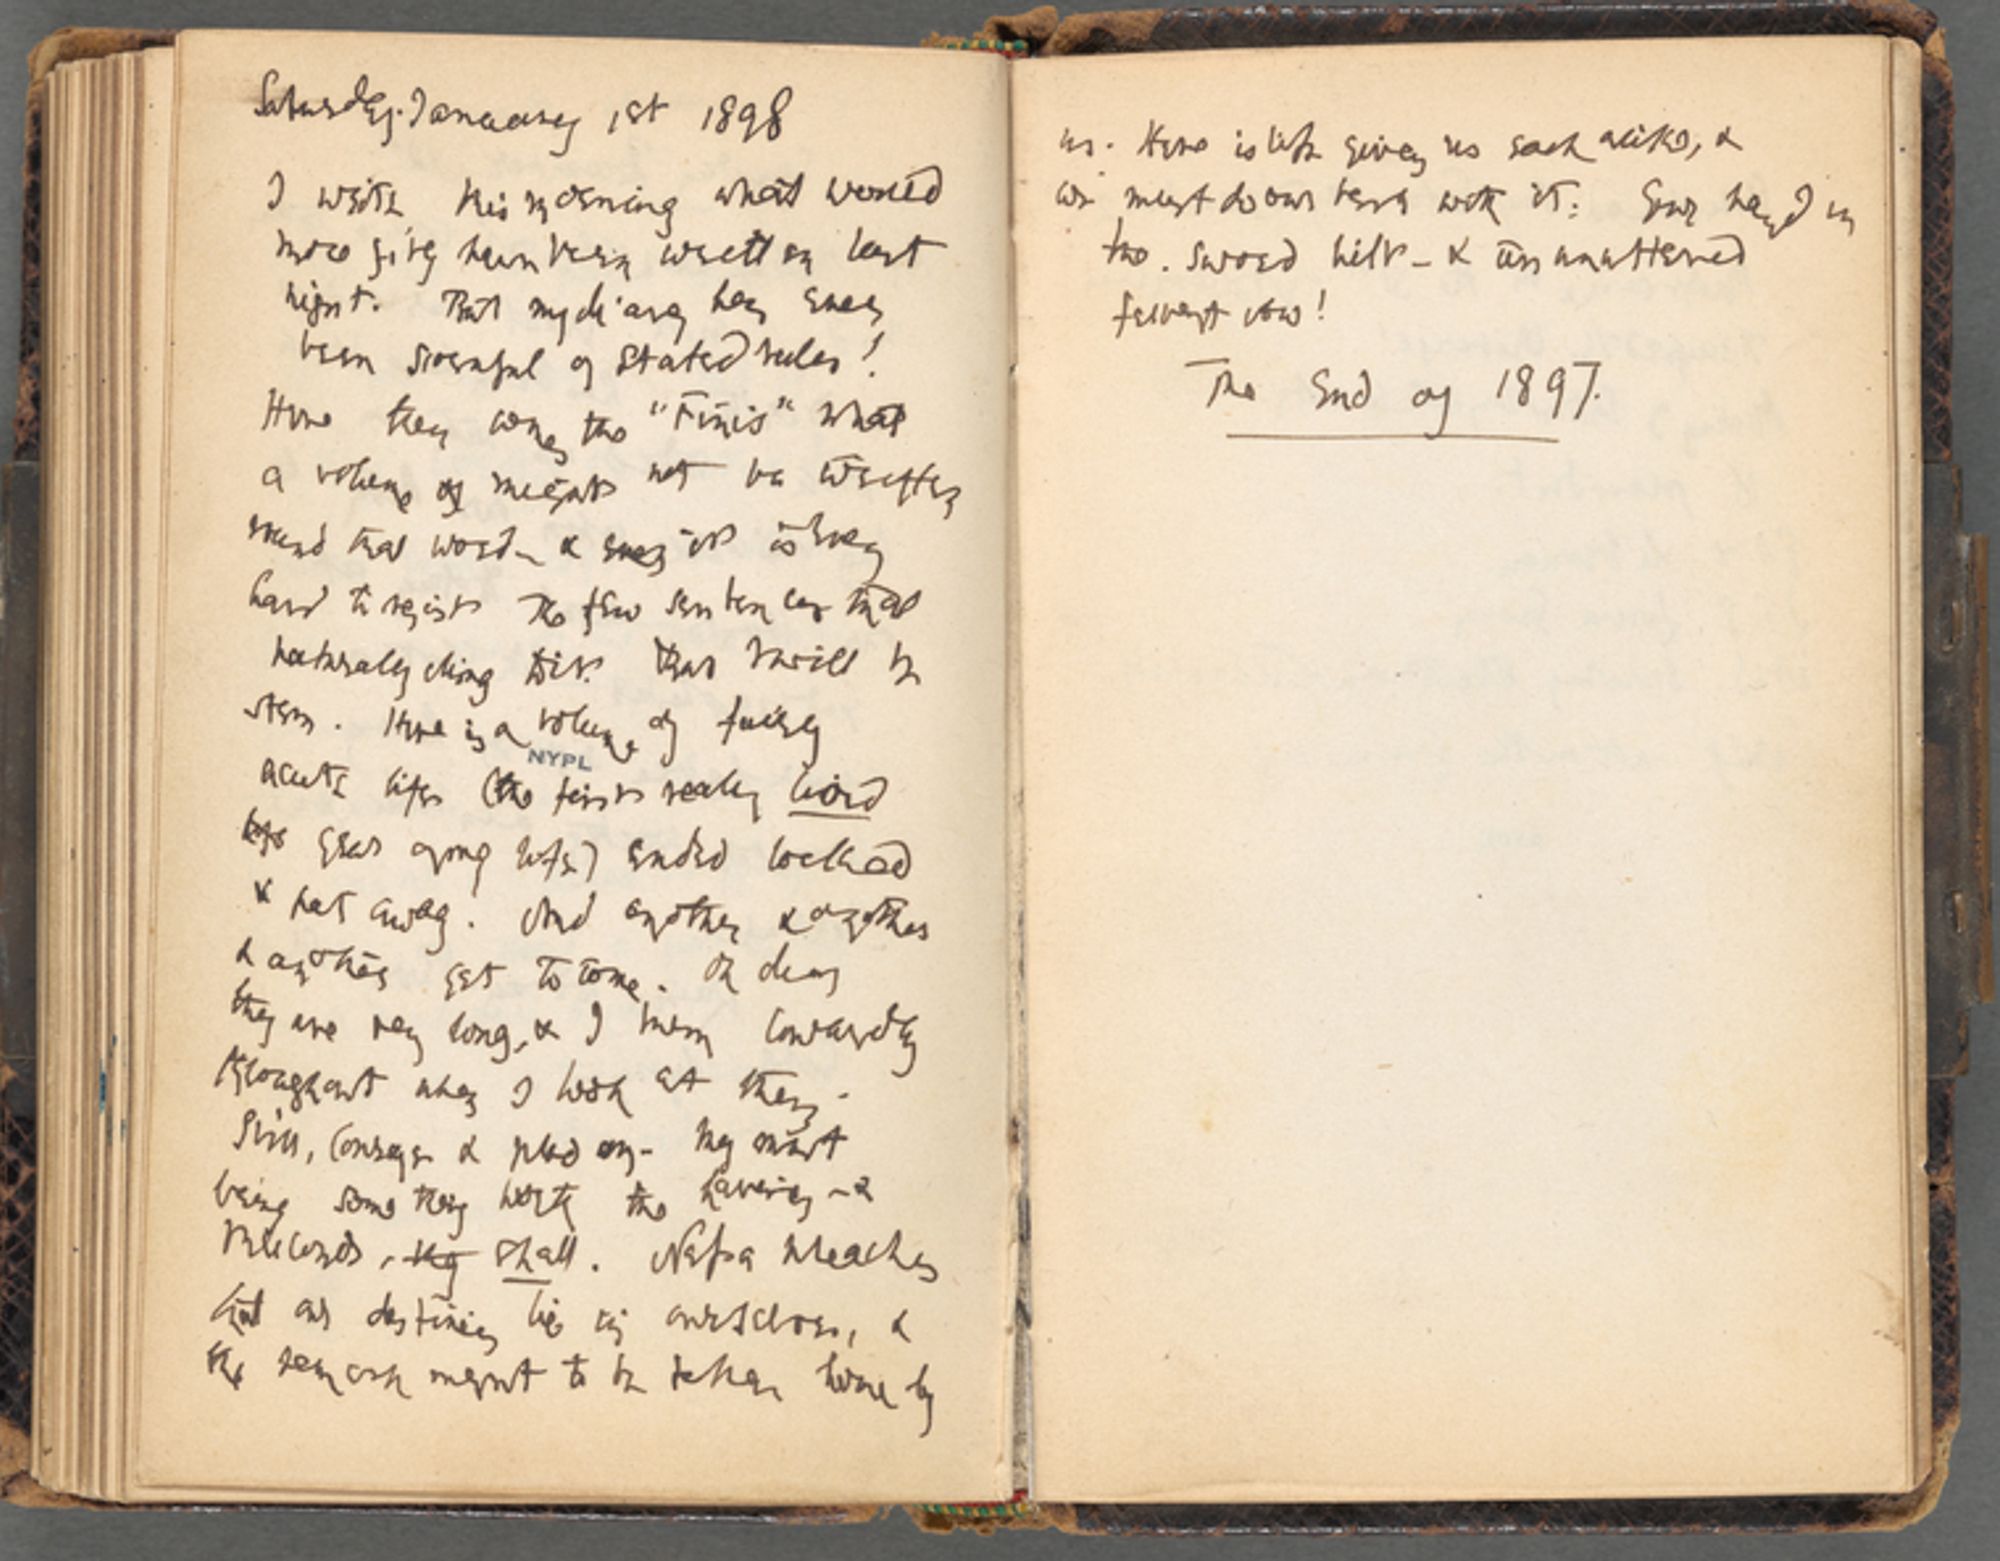 Saturday. January 1st 1898
I write this morning what would
more fitly have been written last
night. That my diary has ever
been scornful of stated rules!
Here then comes the "Finis" What
a volume of might not be written
round that word — & even it is very
hard to resist the few sentences that
naturally cling to it. That I will be
stern. Here is a volume of fairly
NYPL
acute life (the first really lived
year of my life) ended locked
& put away. And another & another
& another yet to come. Oh dear
they are very long, & I turn cowardly
throughout when I look at them.
Still, courage & plod on — They must
bring something worth the having — &
they shall. Nessa preaches
that our destinies lie in ourselves, &
the sermon ought to be taken home by
us. Here is life given us each alike, &
we must do our best with it: Your hand in
the sword hilt — & an unuttered
fervent vow!
The End of 1897.